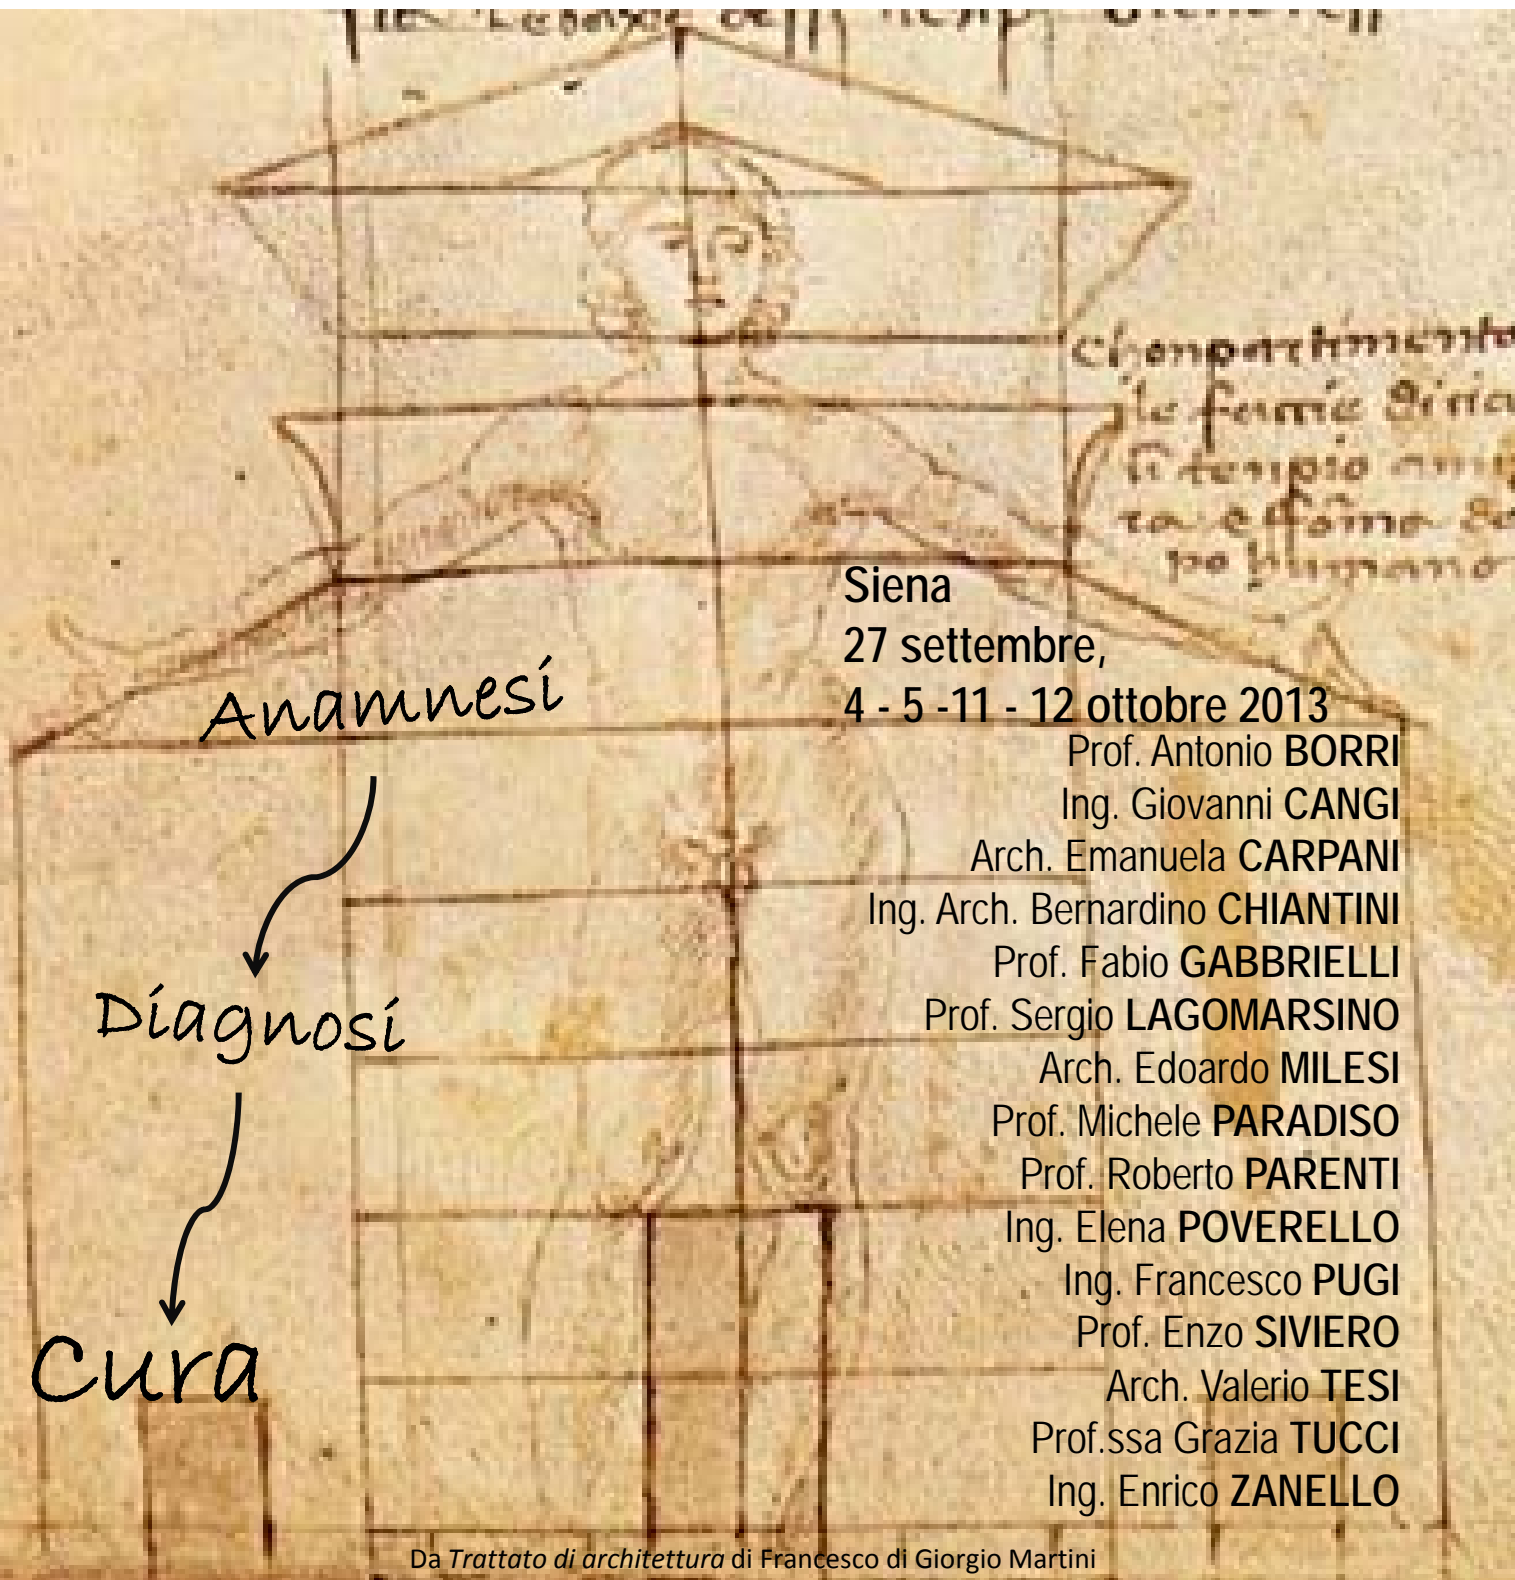 chonpartimento
Siena
27 settembre,
4 - 5 -11 - 12 ottobre 2013
Anamnesi
Diagnosi
Cura
Prof. Antonio BORRI
Ing. Giovanni CANGI
Arch. Emanuela CARPANI
Ing. Arch. Bernardino CHIANTINI
Prof. Fabio GABBRIELLI
Prof. Sergio LAGOMARSINO
Arch. Edoardo MILESI
Prof. Michele PARADISO
Prof. Roberto PARENTI
Ing. Elena POVERELLO
Ing. Francesco PUGI
Prof. Enzo SIVIERO
Arch. Valerio TESI
Prof.ssa Grazia TUCCI
Ing. Enrico ZANELLO
Da Trattato di architettura di Francesco di Giorgio Martini